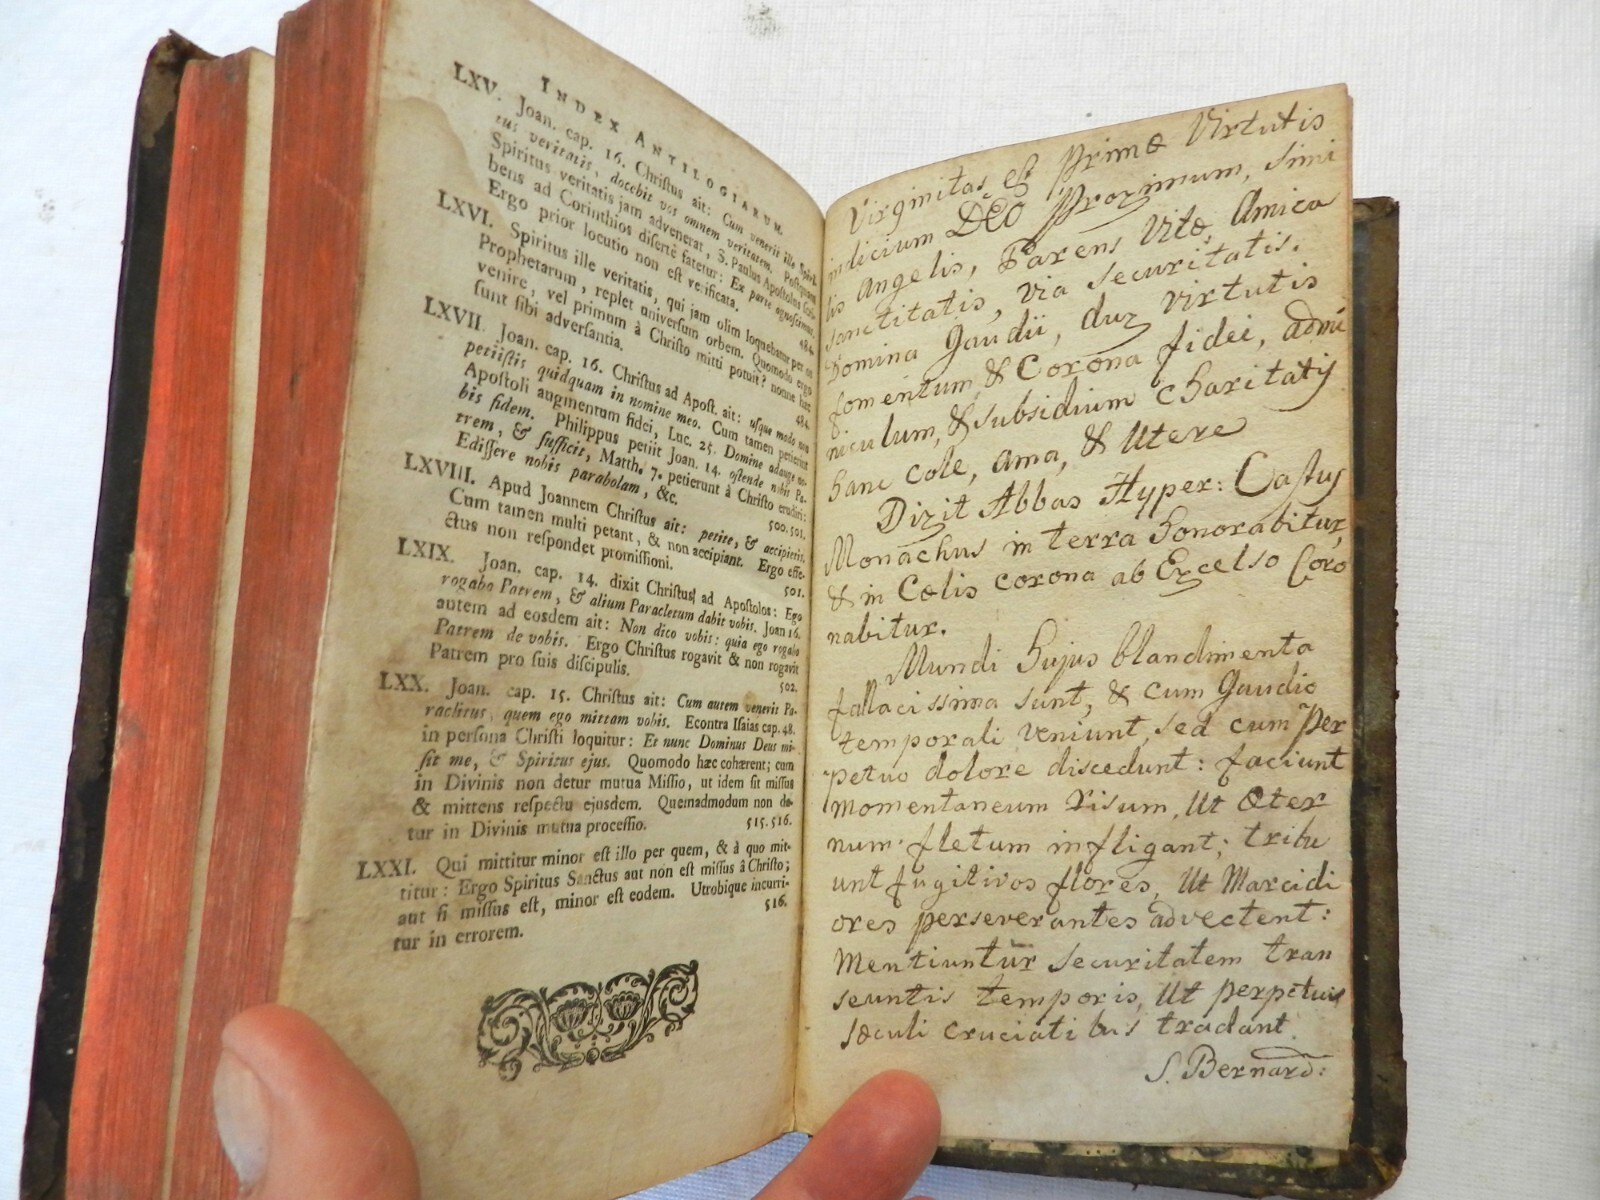 INDEX ANTILOGIARUM.
LXV. Joan. cap. 16. Christus ait: Cum venerit ille Spiri-
tus veritatis, docebit vos omnem veritatem. Postquam
Spiritus veritatis jam advenerat, S. Paulus Apostolus scri-
bens ad Corinthios disertè fatetur: Ex parte cognoscimus.
Ergo prior locutio non est verificata. 484.
LXVI. Spiritus ille veritatis, qui jam olim loquebatur per os
Prophetarum, replet universum orbem. Quomodo ergo
venire, vel primum à Christo mitti potuit? nonne hæc
sunt sibi adversantia. 484.
LXVII. Joan. cap. 16. Christus ad Apost. ait: usque modo non
petiistis quidquam in nomine meo. Cum tamen petierint
Apostoli augmentum fidei, Luc. 25. Domine adauge no-
bis fidem. Philippus petiit Joan. 14. ostende nobis Pa-
trem, & sufficit, Matth. 7. petierunt à Christo erudiri:
Edissere nobis parabolam, &c. 500. 501.
LXVIII. Apud Joannem Christus ait: petite, & accipietis.
Cum tamen multi petant, & non accipiant. Ergo effe-
ctus non respondet promissioni. 501.
LXIX. Joan. cap. 14. dixit Christus ad Apostolos: Ego
rogabo Patrem, & alium Paracletum dabit vobis. Joan 16.
autem ad eosdem ait: Non dico vobis: quia ego rogabo
Patrem de vobis. Ergo Christus rogavit & non rogavit
Patrem pro suis discipulis. 502.
LXX. Joan. cap. 15. Christus ait: Cum autem venerit Pa-
raclitus, quem ego mittam vobis. Econtra Isaias cap. 48.
in persona Christi loquitur: Et nunc Dominus Deus mi-
sit me, & Spiritus ejus. Quomodo hæc cohærent; cum
in Divinis non detur mutua Missio, ut idem sit missus
& mittens respectu ejusdem. Quemadmodum non da-
tur in Divinis mutua processio. 515. 516.
LXXI. Qui mittitur minor est illo per quem, & à quo mit-
titur: Ergo Spiritus Sanctus aut non est missus â Christo;
aut si missus est, minor est eodem. Utrobique incurri-
tur in errorem. 516.
Virginitas est Primæ Virtutis
indicium DEO Proximum, simi
lis Angelis, Parens Vitæ, Amica
sanctitatis, via securitatis.
Domina Gaudii, dux virtutis
fomentum, & Corona fidei, admi
niculum, & subsidium Charitatis
hanc cole, ama, & Utere
Dixit Abbas Hyper: Castus
Monachus in terra honorabitur,
& in Cœlis corona ab Excelso Coro
nabitur.
Mundi hujus blandimenta
fallacissima sunt, & cum Gaudio
temporali veniunt, sed cum Per
petuo dolore discedunt: faciunt
momentaneum risum, Ut æter
num fletum infligant; tribu
unt fugitivos flores, Ut Marcidi
ores perseverantes advectent:
Mentiuntur securitatem tran
seuntis temporis, Ut perpetuis
sæculi cruciatibus tradant.
S. Bernard: